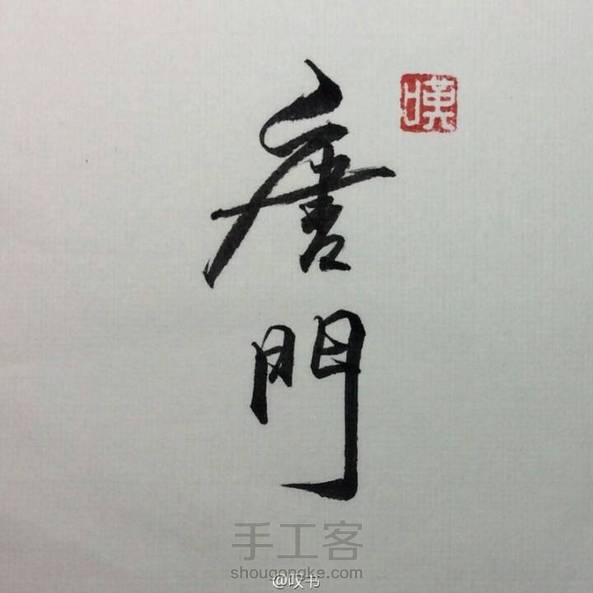 唐門
嘆
手工客
shougongke.com
@叹书